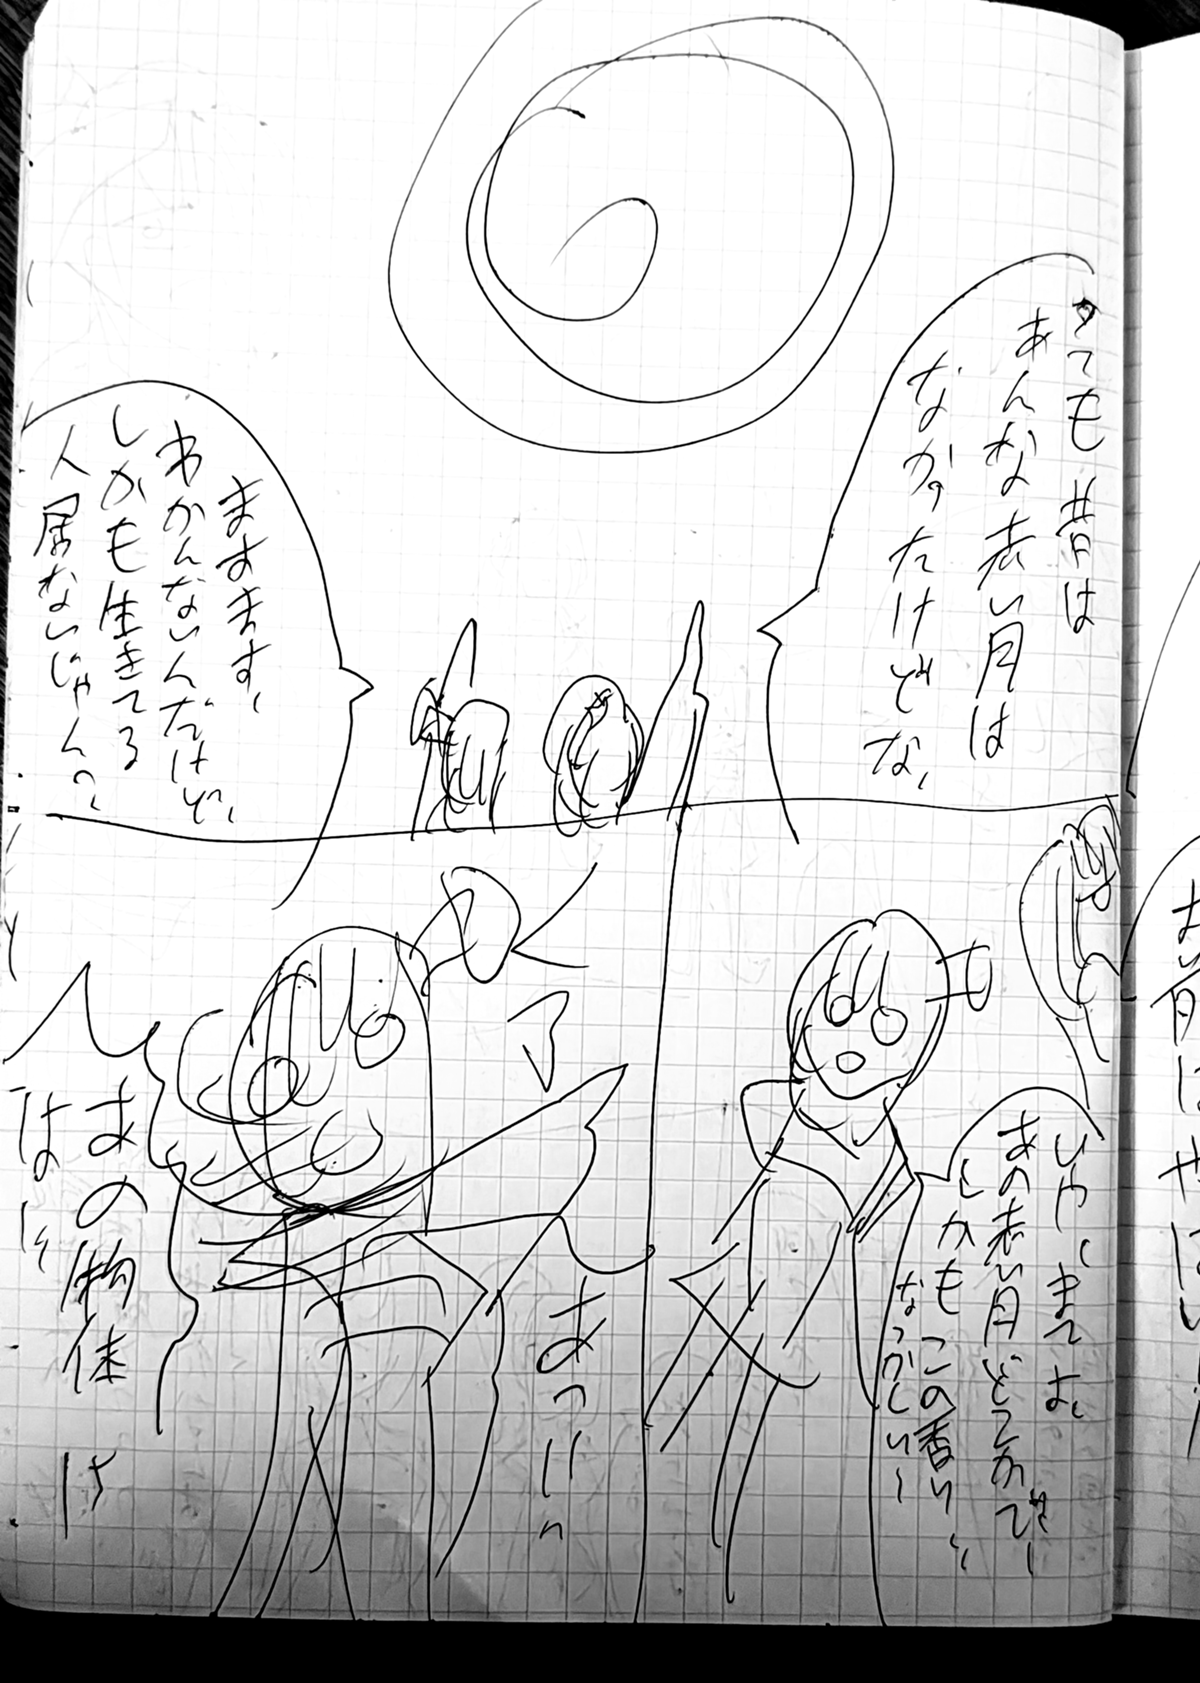 でも昔は
あんな赤い月は
なかったけどな、
ますます、
わかんないんだけど、
しかも生きてる
人居ないじゃん?
いや、まてよ、
あの赤い月どこかで
しかもこの香り
なつかしい〜
あっ!!
あの物体
は!!